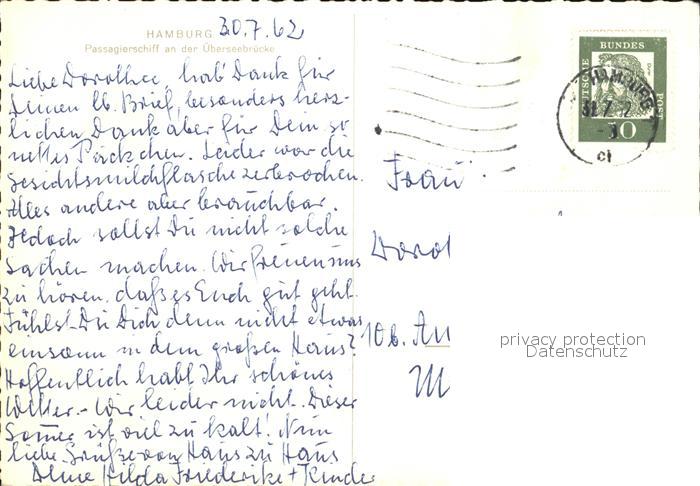 HAMBURG 30.7.62
Passagierschiff an der Überseebrücke
Liebe Dorothee, hab' Dank für
Deinen lb. Brief, besonders herz-
lichen Dank aber für Dein so
nettes Päckchen. Leider war die
Gesichtsmilchflasche zerbrochen.
Alles andere aber brauchbar.
Jedoch sollst Du nicht solche
Sachen machen. Wir freuen uns
zu hören, daß es Euch gut geht.
Fühlst Du Dich denn nicht etwas
einsam in dem großen Haus?
Hoffentlich habt Ihr schönes
Wetter.- Wir leider nicht. Dieser
Sommer ist viel zu kalt! Nun
liebe Grüße von Haus zu Haus
Deine Hilda Friederike + Kinder
DEUTSCHE BUNDES POST
HAMBURG
Frau
Dorot
10b. An
privacy protection
Datenschutz